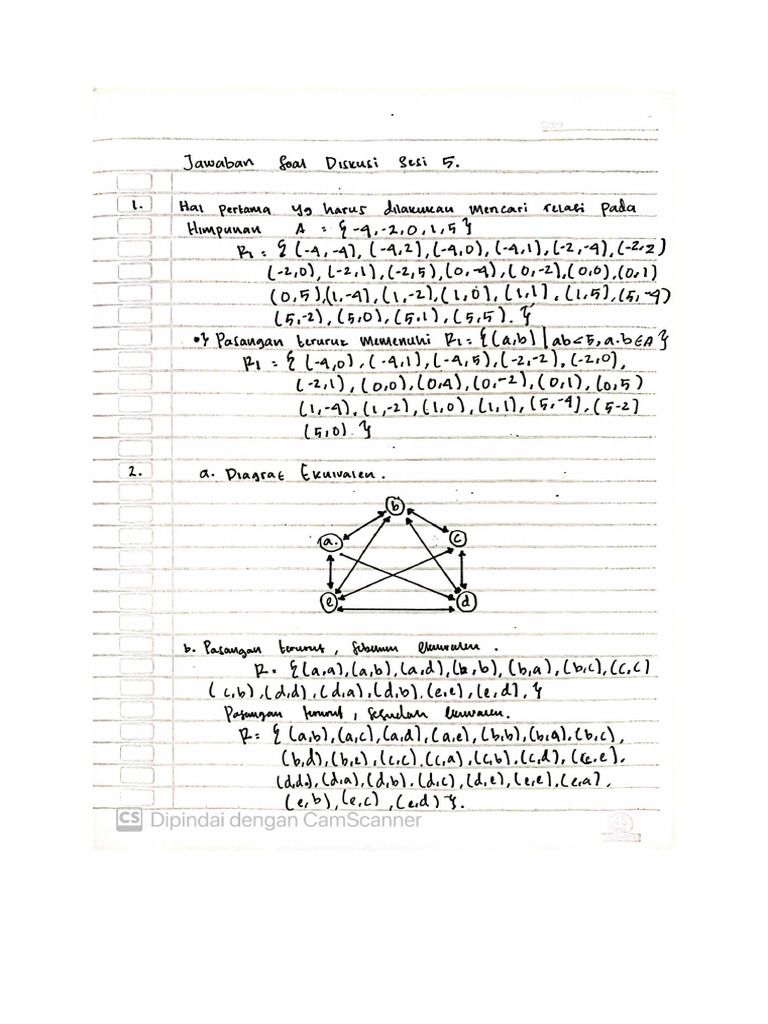 Jawaban Soal Diskusi Sesi 5.
1. Hal pertama yg harus dilakukan mencari relasi pada
Himpunan A = {-4,-2,0,1,5}
R1 = {(-4,-4),(-4,2),(-4,0),(-4,1),(-2,-4),(-2,2)
(-2,0),(-2,1),(-2,5),(0,-4),(0,-2),(0,0),(0,1)
(0,5),(1,-4),(1,-2),(1,0),(1,1),(1,5),(5,-4)
(5,-2),(5,0),(5,1),(5,5).}
Pasangan terurut memenuhi R1 = {(a,b)|ab<5, a.b∈A}
R1 = {(-4,0),(-4,1),(-4,5),(-2,-2),(-2,0),
(-2,1),(0,0),(0,4),(0,-2),(0,1),(0,5)
(1,-4),(1,-2),(1,0),(1,1),(5,-4),(5-2)
(5,0).}
2. a. Diagraf Ekuivalen.
b
a.
c
e
d
b. Pasangan terurut, sebelum ekuivalen.
R = {(a,a),(a,b),(a,d),(b,b),(b,a),(b,c),(c,c)
(c,b),(d,d),(d,a),(d,b),(e,e),(e,d),}
Pasangan terurut, sesudah ekuivalen.
R = {(a,b),(a,c),(a,d),(a,e),(b,b),(b,a).(b,c),
(b,d),(b,e),(c,c),(c,a),(c,b),(c,d),(c,e).
(d,d),(d,a),(d,b).(d,c),(d,e),(e,e),(e,a),
(e,b),(e,c),(e,d)}.
CS Dipindai dengan CamScanner